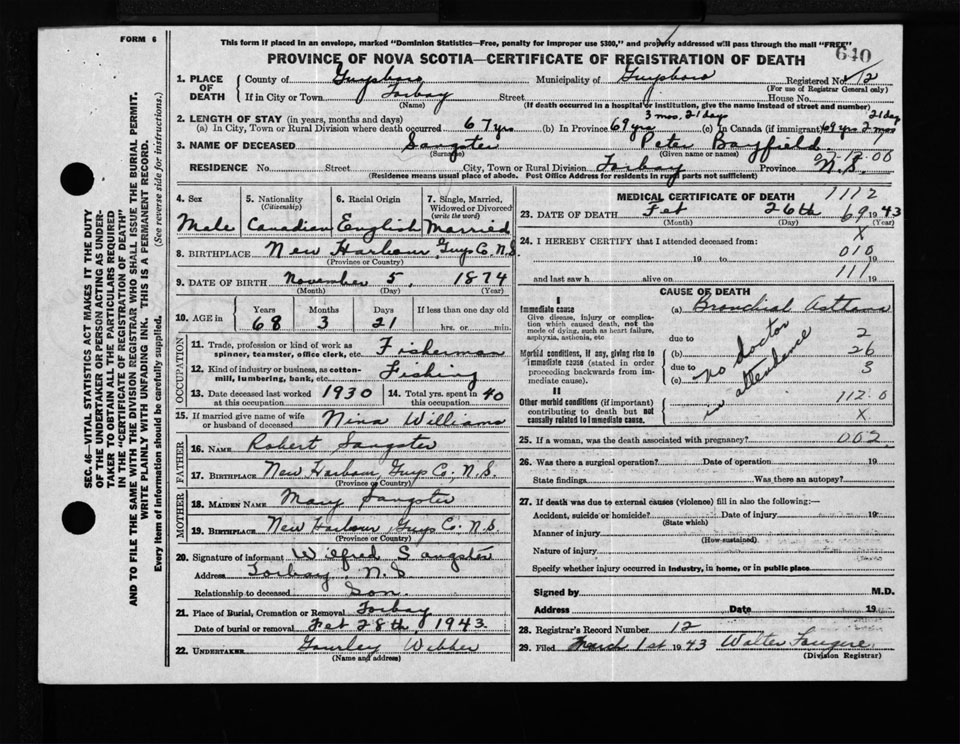 FORM 6
This form if placed in an envelope, marked "Dominion Statistics—Free, penalty for improper use $300," and properly addressed will pass through the mail "FREE"
640
PROVINCE OF NOVA SCOTIA—CERTIFICATE OF REGISTRATION OF DEATH
1. PLACE OF DEATH County of Guysboro Municipality of Guysboro Registered No. 12
(For use of Registrar General only)
If in City or Town Torbay Street House No.
(Name) (If death occurred in a hospital or institution, give the name instead of street and number)
2. LENGTH OF STAY (in years, months and days) 3 mos. 21 days 21 day
(a) In City, Town or Rural Division where death occurred 67 yrs (b) In Province 69 yrs (c) In Canada (if immigrant) 69 yrs 2 mos
3. NAME OF DECEASED Sangster Peter Bayfield
(Surname) (Given name or names)
RESIDENCE No. Street City, Town or Rural Division Torbay Province N.S.
(Residence means usual place of abode. Post Office Address for residents in rural parts not sufficient)
4. Sex Male
5. Nationality (Citizenship) Canadian
6. Racial Origin English
7. Single, Married, Widowed or Divorced (write the word) Married
8. BIRTHPLACE New Harbour, Guys Co. N.S.
(Province or Country)
9. DATE OF BIRTH November 5, 1874
(Month) (Day) (Year)
10. AGE in Years 68 Months 3 Days 21 If less than one day
hrs. or min.
OCCUPATION
11. Trade, profession or kind of work as spinner, teamster, office clerk, etc. Fisherman
12. Kind of industry or business, as cotton-mill, lumbering, bank, etc. Fishing
13. Date deceased last worked at this occupation 1930 14. Total yrs. spent in this occupation 40
15. If married give name of wife or husband of deceased Nina Williams
FATHER
16. NAME Robert Sangster
17. BIRTHPLACE New Harbour, Guys Co. N.S.
(Province or Country)
MOTHER
18. MAIDEN NAME Mary Sangster
19. BIRTHPLACE New Harbour, Guys Co. N.S.
(Province or Country)
20. Signature of informant Wilfred Sangster
Address Torbay, N.S.
Relationship to deceased Son.
21. Place of Burial, Cremation or Removal Torbay
Date of burial or removal Feb 28th, 1943.
22. UNDERTAKER Gourley Webber
(Name and address)
MEDICAL CERTIFICATE OF DEATH 1112
23. DATE OF DEATH Feb 26th 69 1943
(Month) (Day) (Year)
X
24. I HEREBY CERTIFY that I attended deceased from:
010
19 to 19
111
and last saw h alive on 19
CAUSE OF DEATH
I
Immediate cause (a) Bronchial Asthma
Give disease, injury or complication which caused death, not the mode of dying, such as heart failure, asphyxia, asthenia, etc
due to 2
Morbid conditions, if any, giving rise to immediate cause (stated in order proceeding backwards from immediate cause).
(b) 26
due to 3
(c)
no doctor in attendance
II
Other morbid conditions (if important) contributing to death but not causally related to immediate cause.
112.0
X
25. If a woman, was the death associated with pregnancy? 002
26. Was there a surgical operation? Date of operation 19
State findings Was there an autopsy?
27. If death was due to external causes (violence) fill in also the following:—
Accident, suicide or homicide? Date of injury 19
(State which)
Manner of injury
(How sustained)
Nature of injury
Specify whether injury occurred in industry, in home, or in public place
Signed by M.D.
Address Date 19
28. Registrar's Record Number 12
29. Filed March 1st 1943 Walter
(Division Registrar)
SEC. 46—VITAL STATISTICS ACT MAKES IT THE DUTY
OF THE UNDERTAKER OR PERSON ACTING AS UNDER-
TAKER TO OBTAIN ALL THE PARTICULARS REQUIRED
IN THE "CERTIFICATE OF REGISTRATION OF DEATH"
AND TO FILE THE SAME WITH THE DIVISION REGISTRAR WHO SHALL ISSUE THE BURIAL PERMIT.
WRITE PLAINLY WITH UNFADING INK. THIS IS A PERMANENT RECORD.
Every item of information should be carefully supplied. (See reverse side for instructions.)